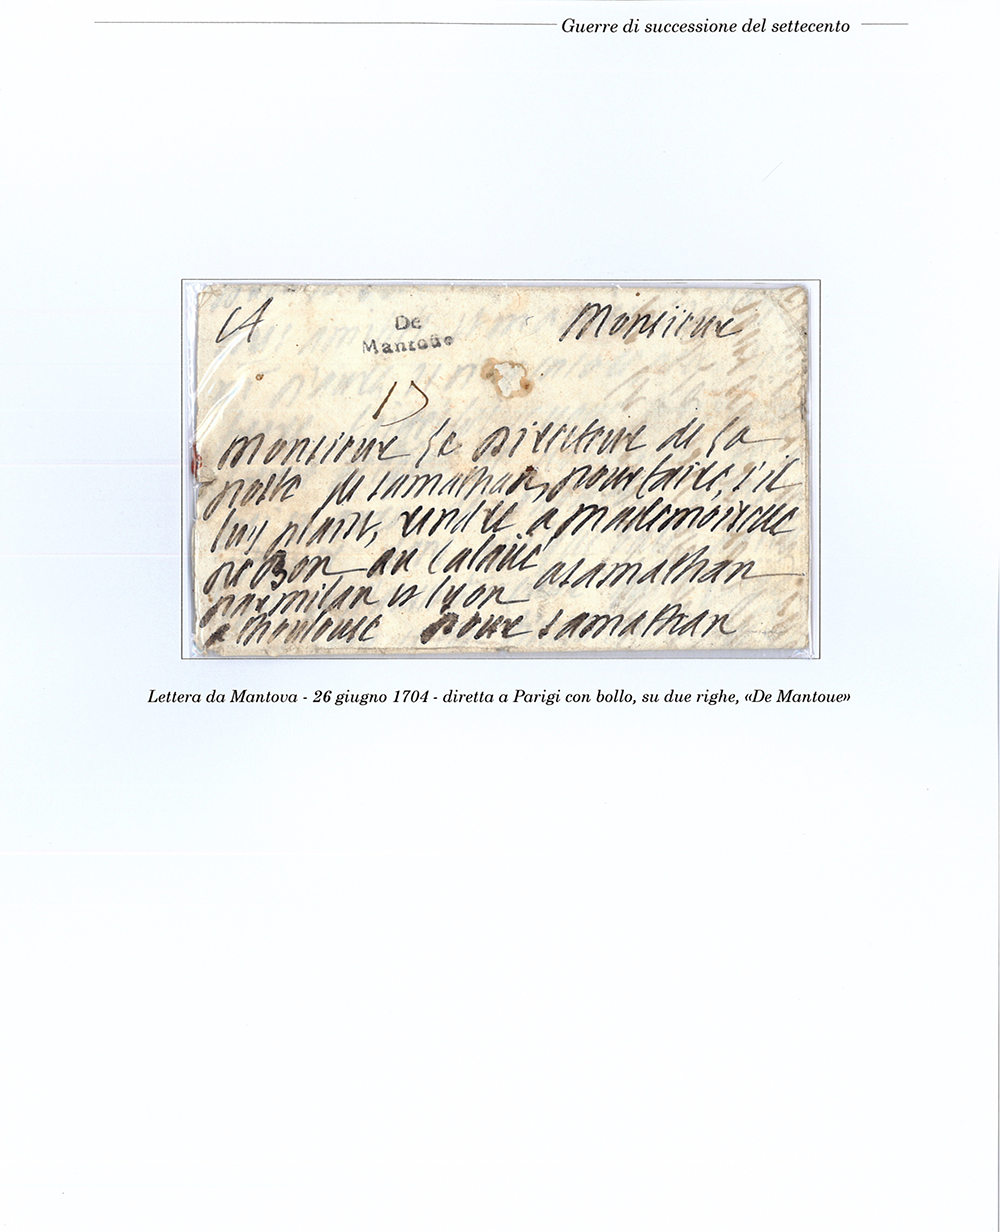 Guerre di successione del settecento
De
Mantoüe
Monsieur
Monsieur le Directeur de la
poste de Lamathan, pour faire, s'il
luy plaist, rendre a mademoiselle
de Bon au
a Lamathan
par milan et lyon
a Thoulouse pour Lamathan
Lettera da Mantova - 26 giugno 1704 - diretta a Parigi con bollo, su due righe, «De Mantoue»